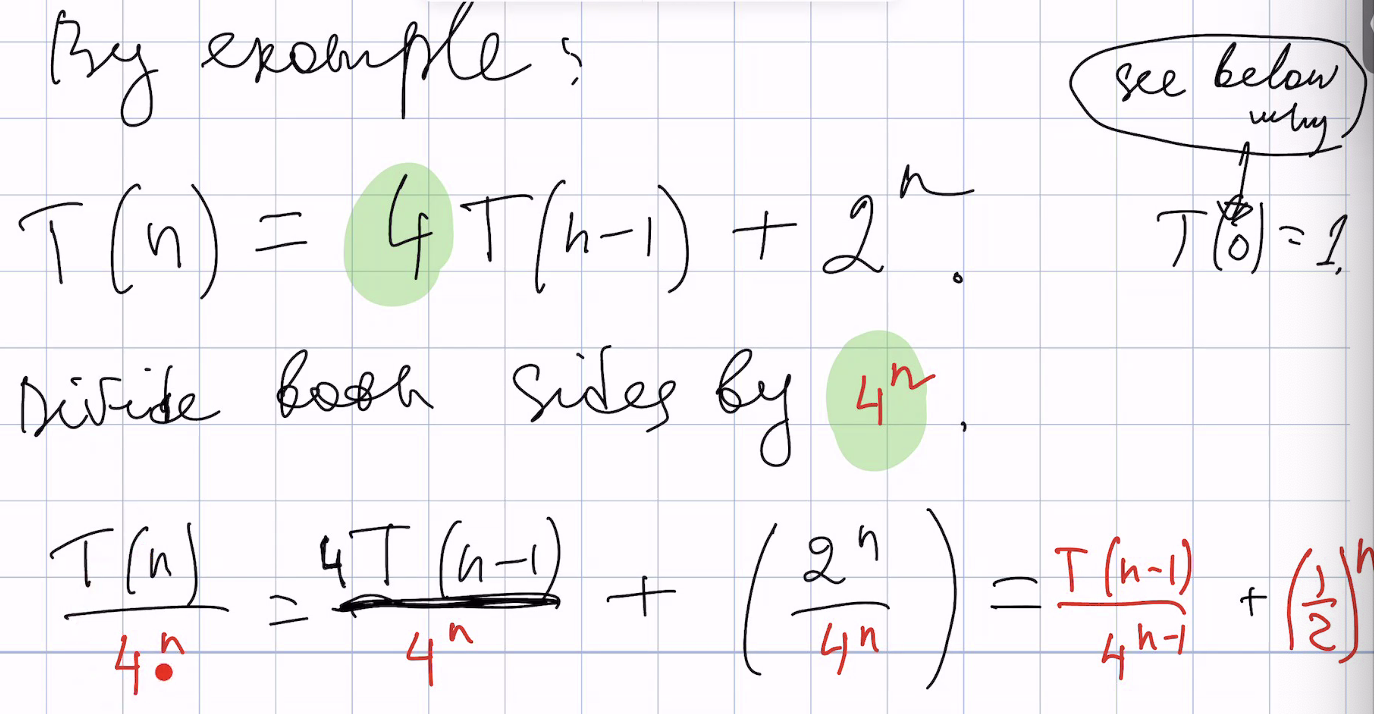 By example:
see below
why
T(n) = 4T(n-1) + 2^n.
T(0) = 1.
Divide both sides by 4^n.
T(n)/4^n = 4T(n-1)/4^n + (2^n/4^n) = T(n-1)/4^(n-1) + (1/2)^n